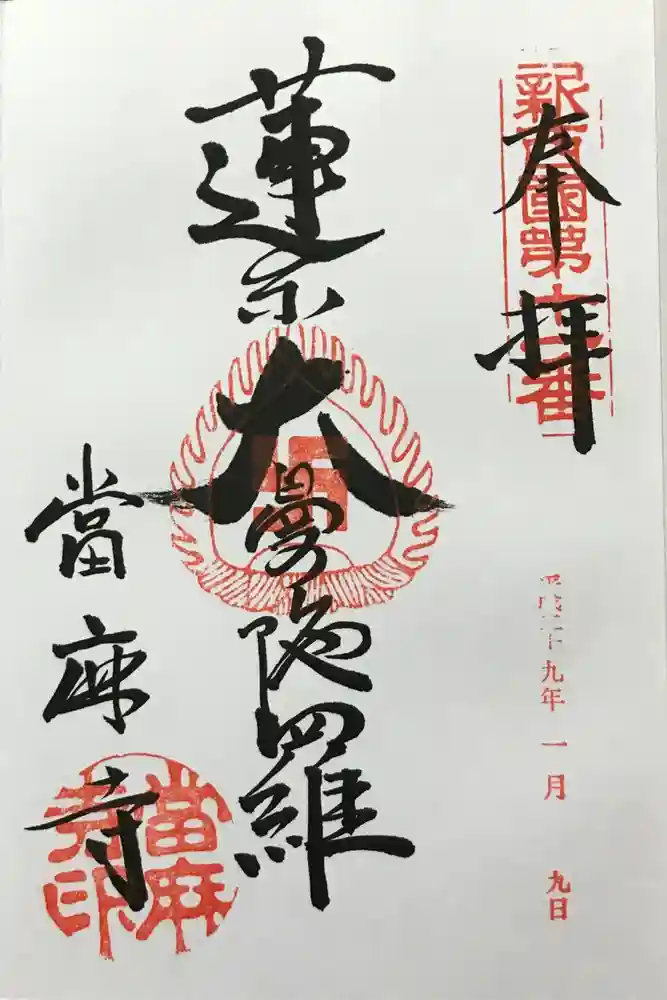 奉拝
新西國第十一番
平成二十九年一月九日
蓮糸大曼陀羅
卍
當麻寺
當麻寺印